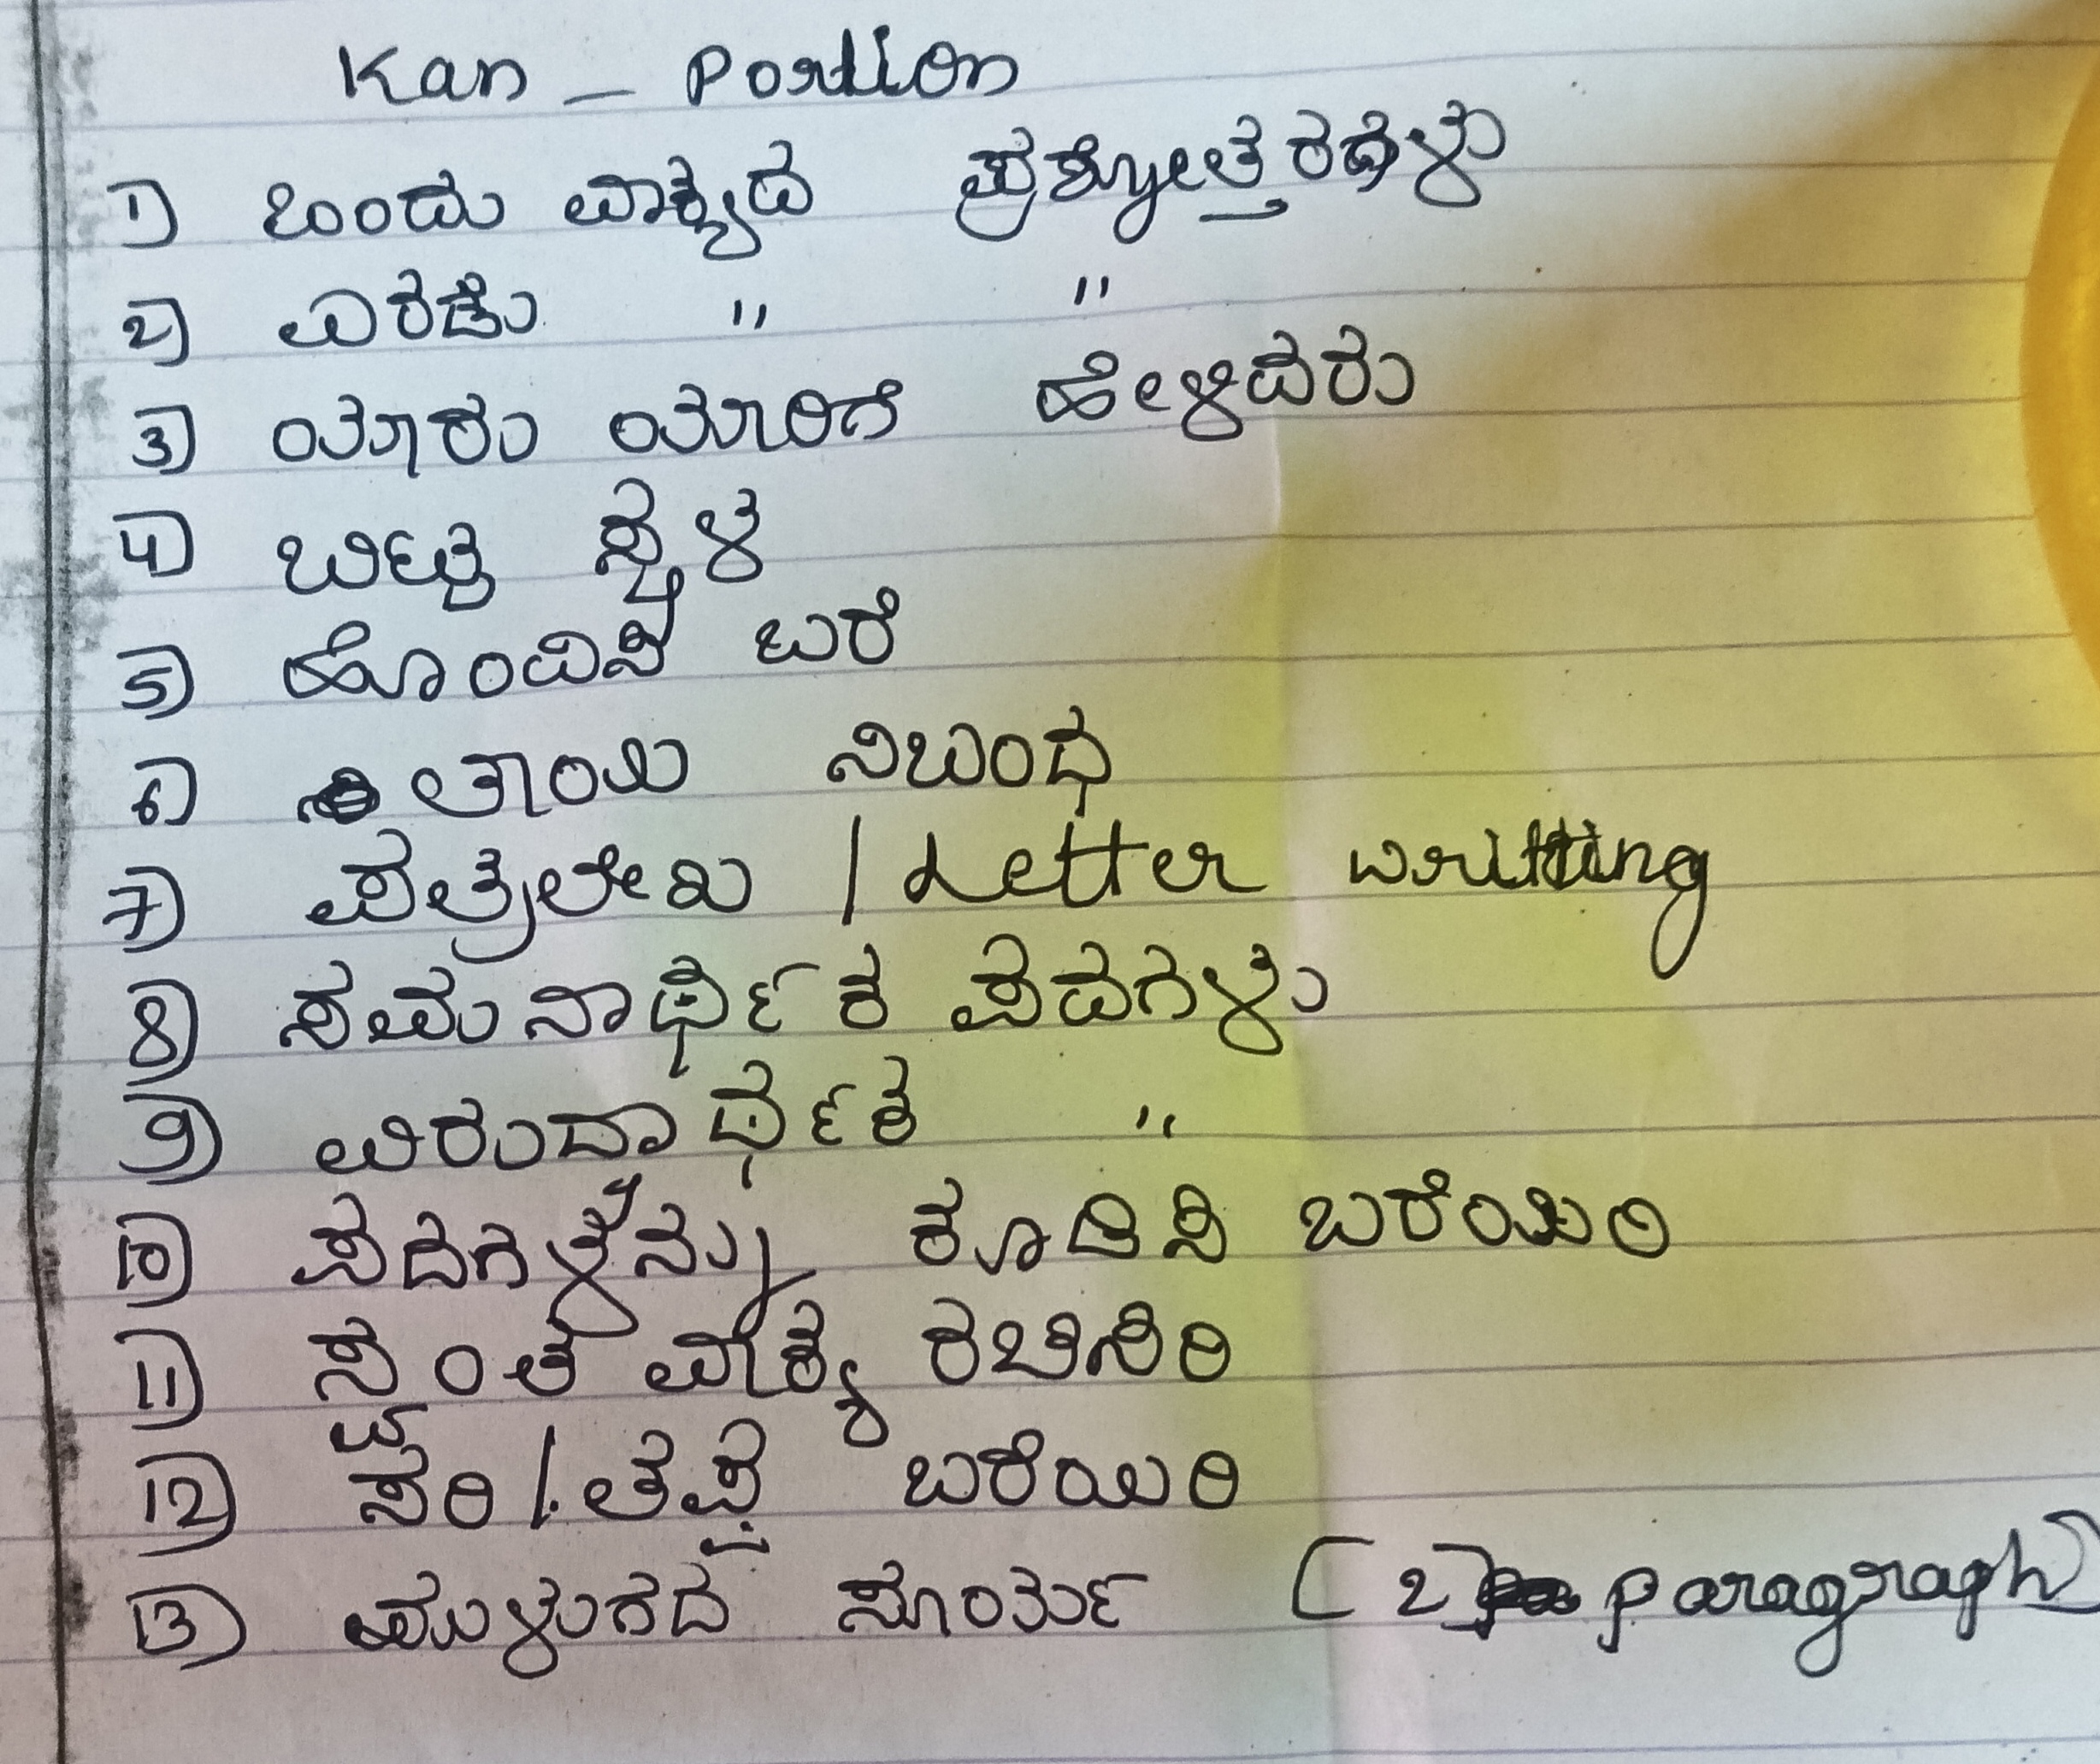 Kan - Portion
1) ಒಂದು ವಾಕ್ಯದ ಪ್ರಶ್ನೋತ್ತರಗಳು
2) ಎರಡು " "
3) ಯಾರು ಯಾರಿಗೆ ಹೇಳಿದರು
4) ಬಿಟ್ಟ ಸ್ಥಳ
5) ಹೊಂದಿಸಿ ಬರೆ
6) ತಾಯಿ ನಿಬಂಧ
7) ಪತ್ರಲೇಖ / Letter writting
8) ಸಮನಾರ್ಥಿಕ ಪದಗಳು
9) ವಿರುದ್ಧಾರ್ಥಕ "
10) ಪದಗಳನ್ನು ಕೂಡಿಸಿ ಬರೆಯಿರಿ
11) ಸ್ವಂತ ವಾಕ್ಯ ರಚಿಸಿರಿ
12) ಸರಿ / ತಪ್ಪು ಬರೆಯಿರಿ
13) ಮುಳುಗದ ಸೂರ್ಯ (2) paragraph)